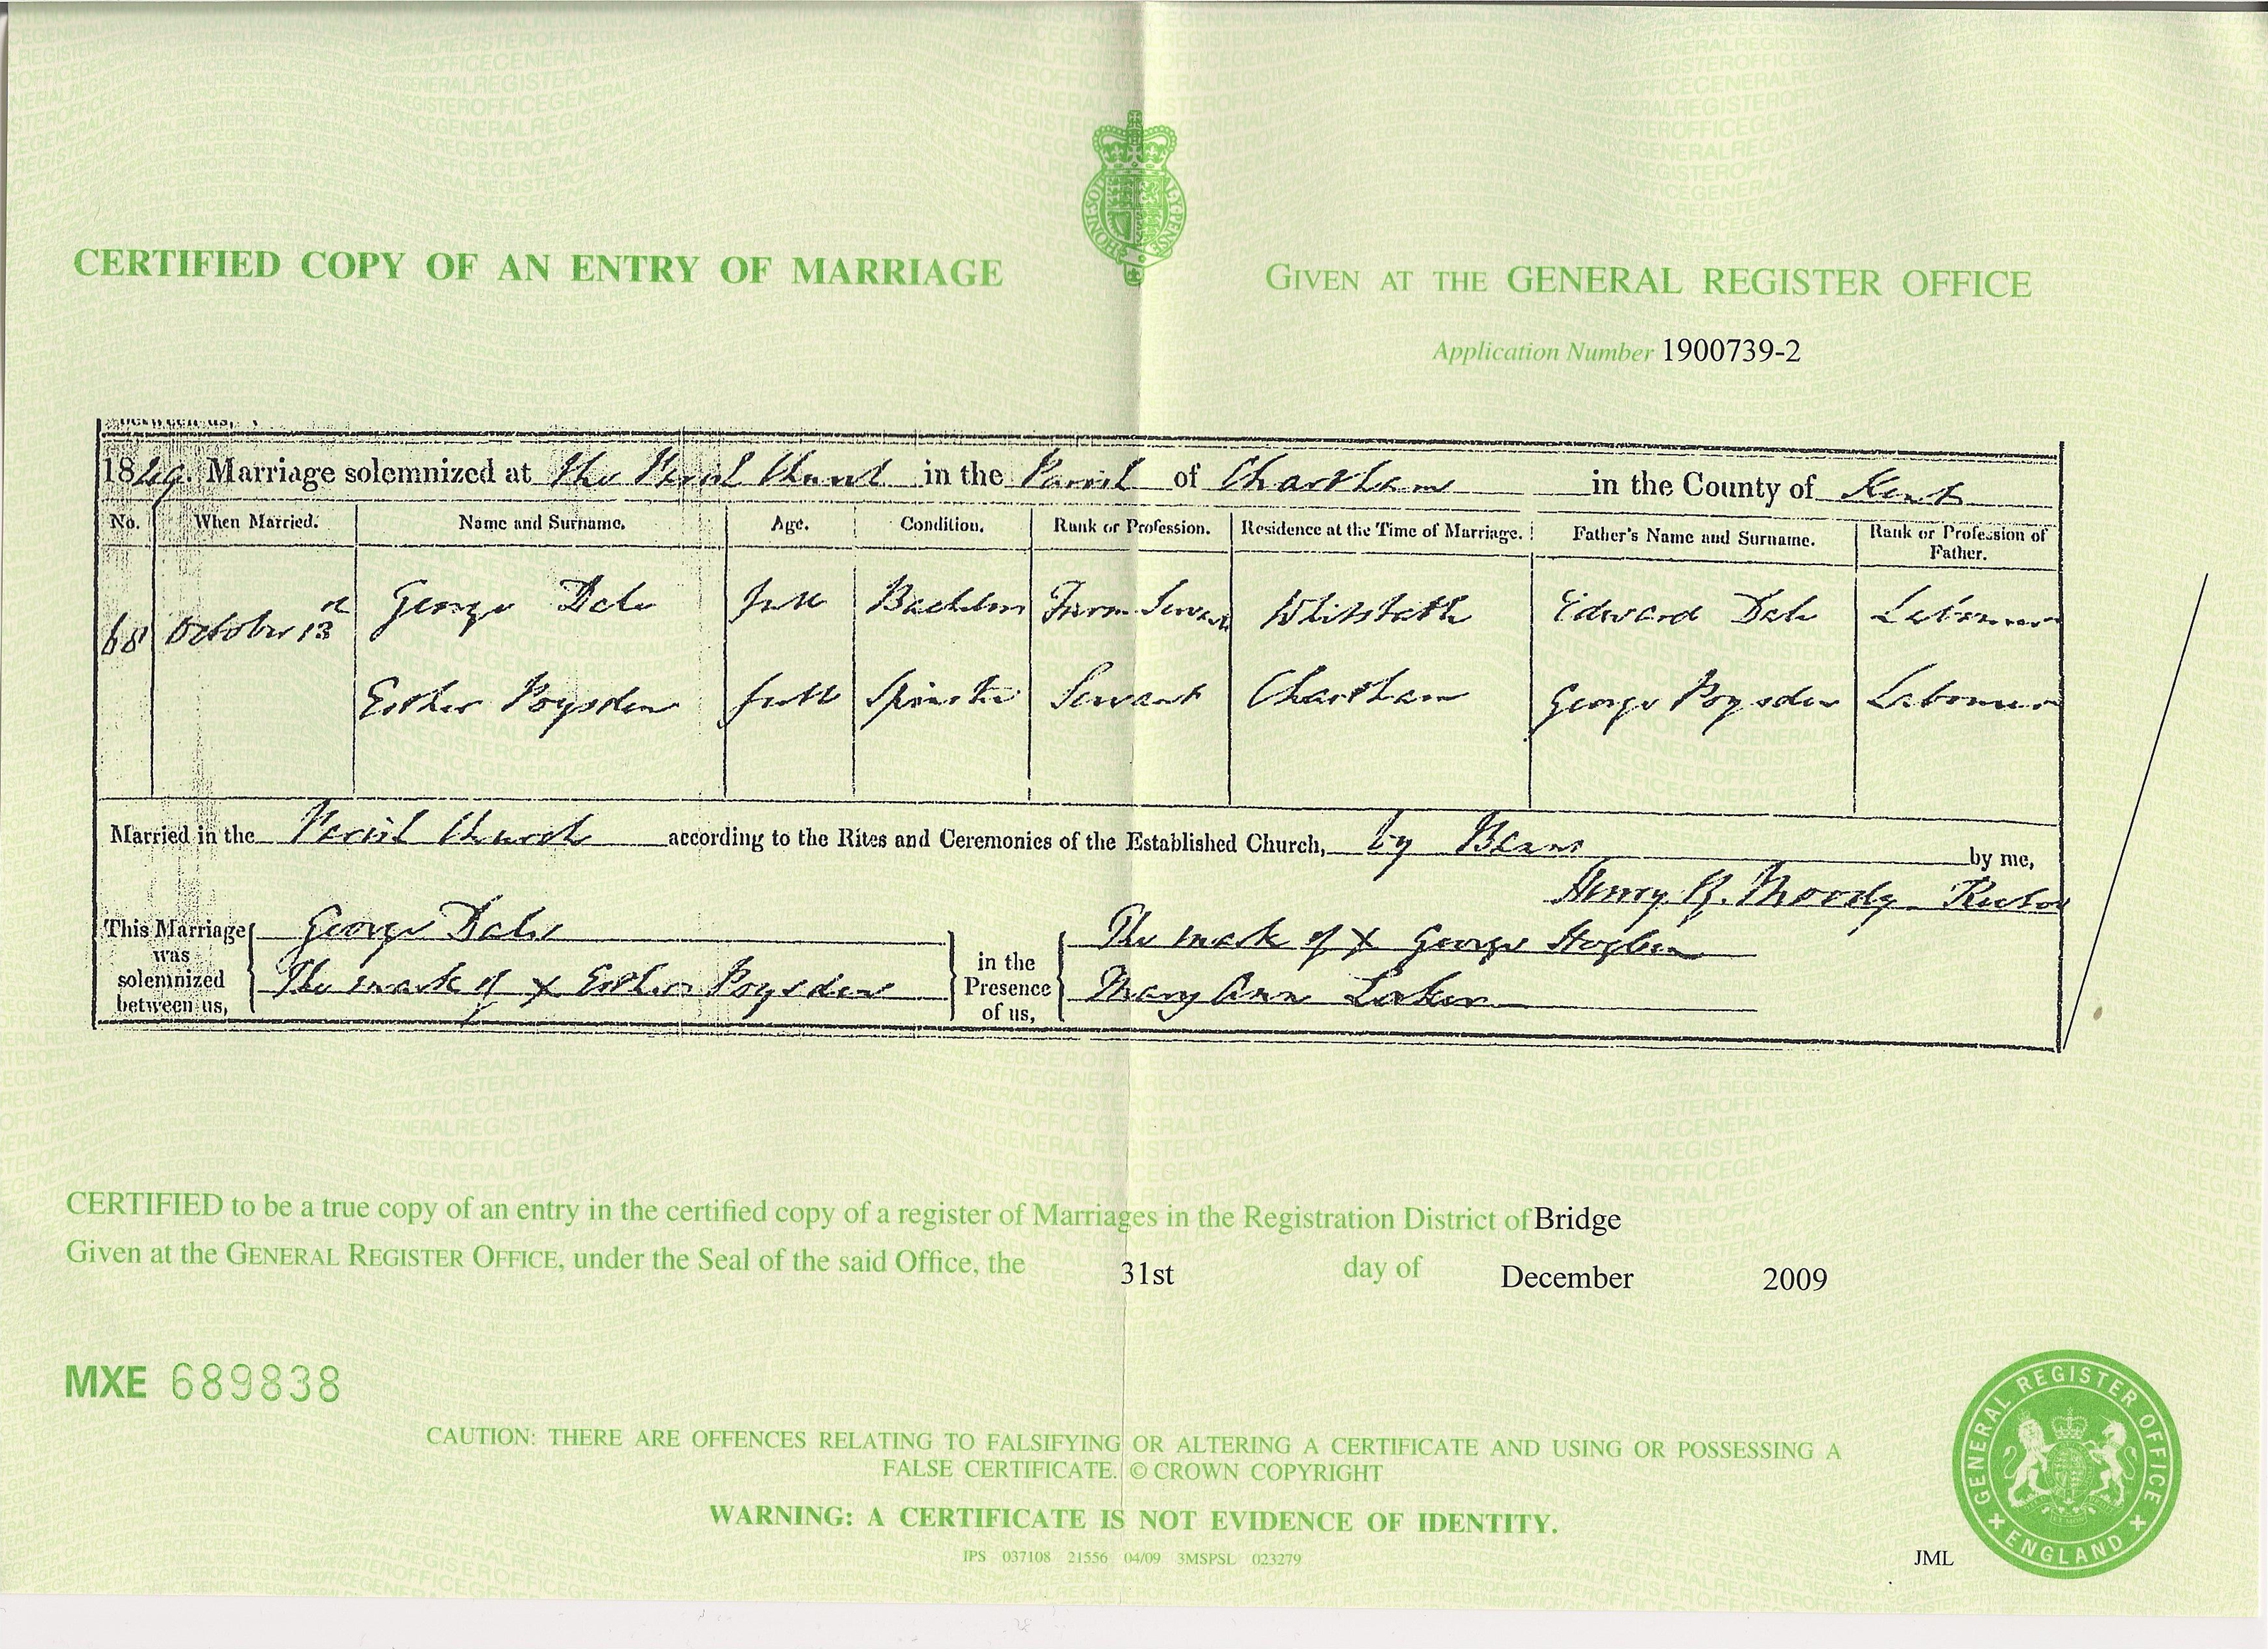 CERTIFIED COPY OF AN ENTRY OF MARRIAGE
GIVEN AT THE GENERAL REGISTER OFFICE
Application Number 1900739-2
between us,
1849. Marriage solemnized at the Parish Church in the Parish of Chartham in the County of Kent
No. When Married. Name and Surname. Age. Condition. Rank or Profession. Residence at the Time of Marriage. Father's Name and Surname. Rank or Profession of Father.
68 October 13 George Dale full Bachelor Farm Servant Whitstable Edward Dale Labourer
Esther Poysden full Spinster Servant Chartham George Poysden Labourer
Married in the Parish Church according to the Rites and Ceremonies of the Established Church, by Banns by me,
Henry R. Moody Rector
This Marriage was solemnized between us,
George Dale
The mark of x Esther Poysden
in the Presence of us,
The mark of x George Hogben
Mary Ann Laker
CERTIFIED to be a true copy of an entry in the certified copy of a register of Marriages in the Registration District of Bridge
Given at the GENERAL REGISTER OFFICE, under the Seal of the said Office, the 31st day of December 2009
MXE 689838
CAUTION: THERE ARE OFFENCES RELATING TO FALSIFYING OR ALTERING A CERTIFICATE AND USING OR POSSESSING A
FALSE CERTIFICATE. © CROWN COPYRIGHT
WARNING: A CERTIFICATE IS NOT EVIDENCE OF IDENTITY.
IPS 037108 21556 04/09 3MSPSL 023279
JML
GENERAL REGISTER OFFICE
ENGLAND